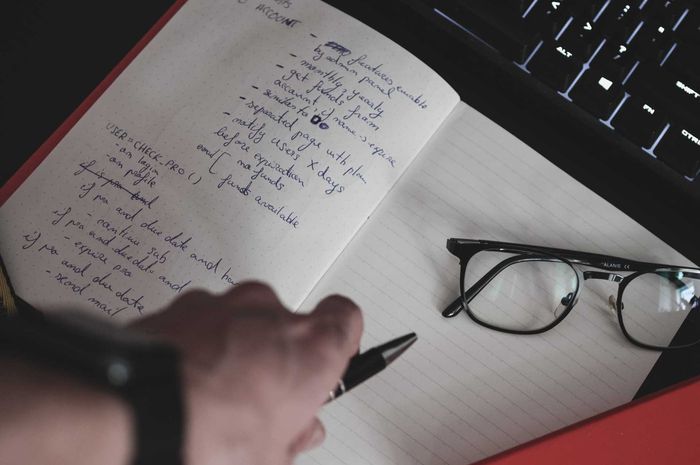 ACCOUNT
- features
by admin panel
- monthly & yearly
- get funds from
account if name's expire
- similar to
- separated page with plan
- notify users X days
before expiration
and [ no funds
funds available
USER = CHECK_PRO()
- on login
- on profile
if pro and due date and
- continue sub
if pro and due date and
- expire pro
if pro and due date
- second mail
ALT
FN
SHIFT
CTRL